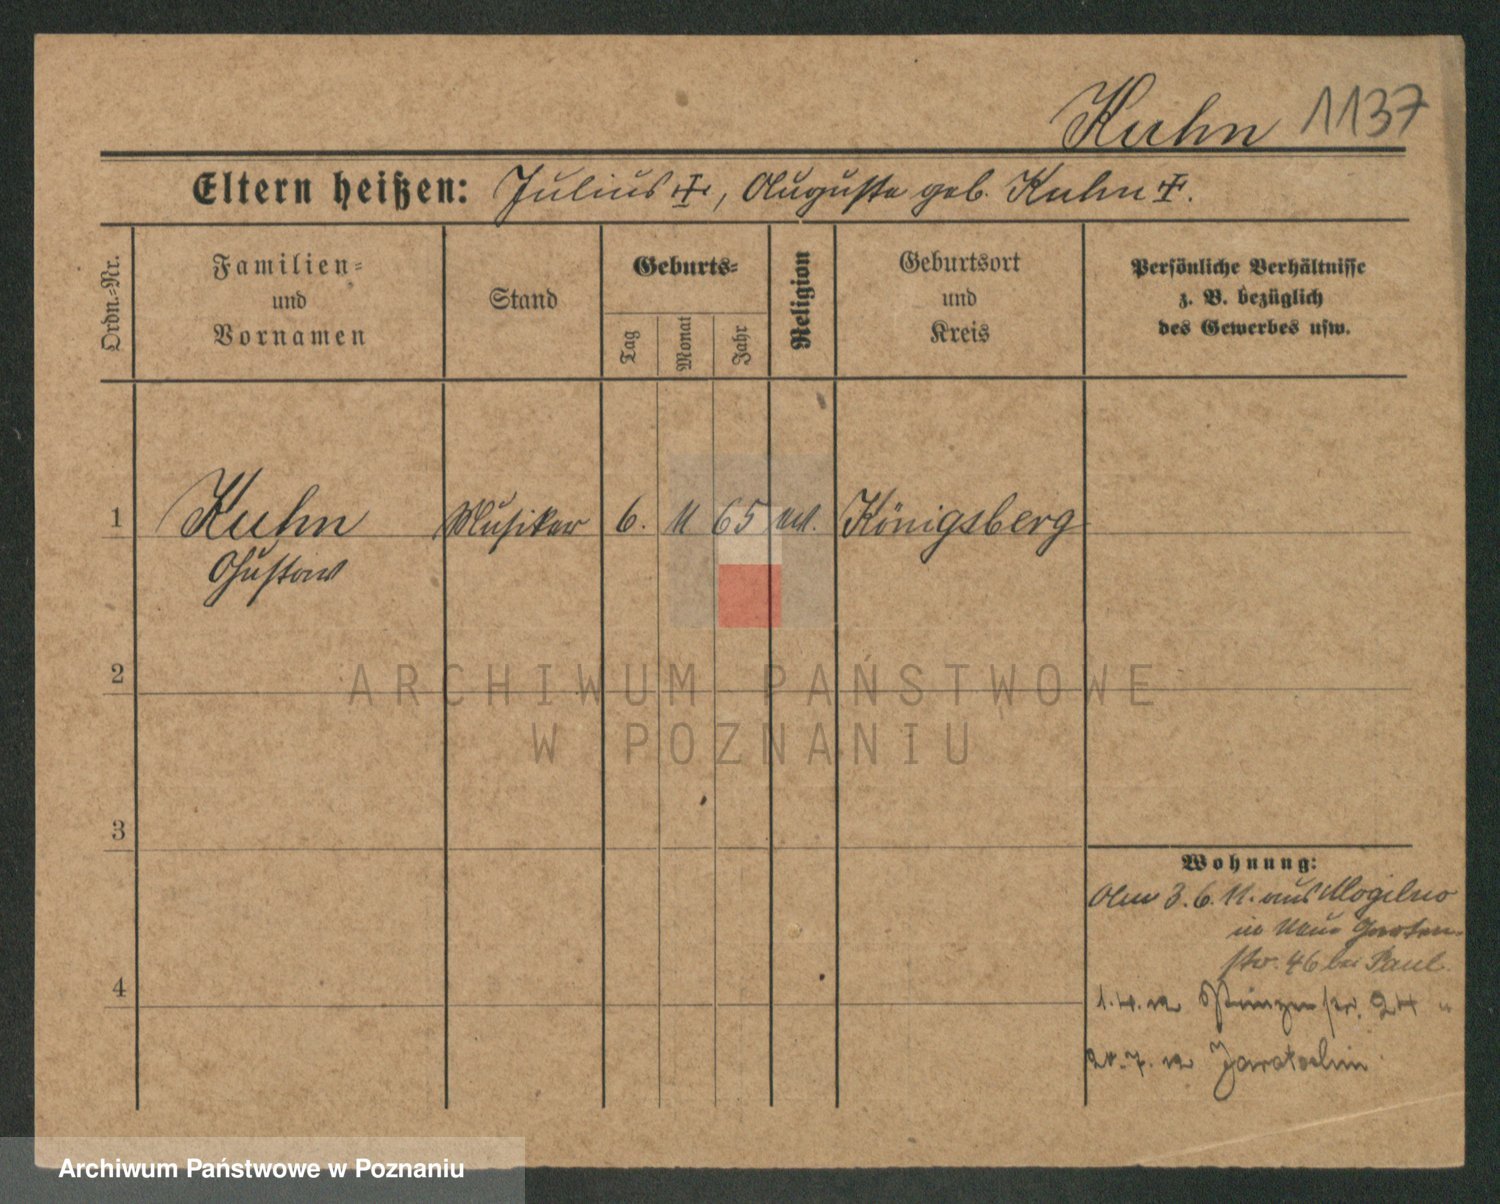 Kuhn 1137
Eltern heißen: Julius, Auguste geb. Kuhn
Ordn.=Nr.
Familien=
und
Vornamen
Stand
Geburts=
Tag
Monat
Jahr
Religion
Geburtsort
und
Kreis
Persönliche Verhältnisse
z. B. bezüglich
des Gewerbes usw.
1 Kuhn Musiker 6. 11 65 Königsberg
Gustav
2
3
4
Wohnung:
Am 3.6.11. aus Mogilno
in Garten
str. 46 bei Paul
1.4.12 Prinzenstr. 24 "
7.12 Jarotschin
ARCHIWUM PAŃSTWOWE
W POZNANIU
Archiwum Państwowe w Poznaniu